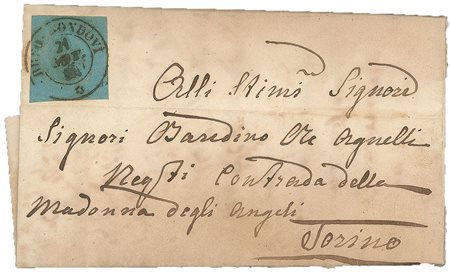 MONDOVI
21
Alli Stimi Signori
Signori Bandino Re Agnelli
Negti Contrada della
Madonna degli Angeli
Torino